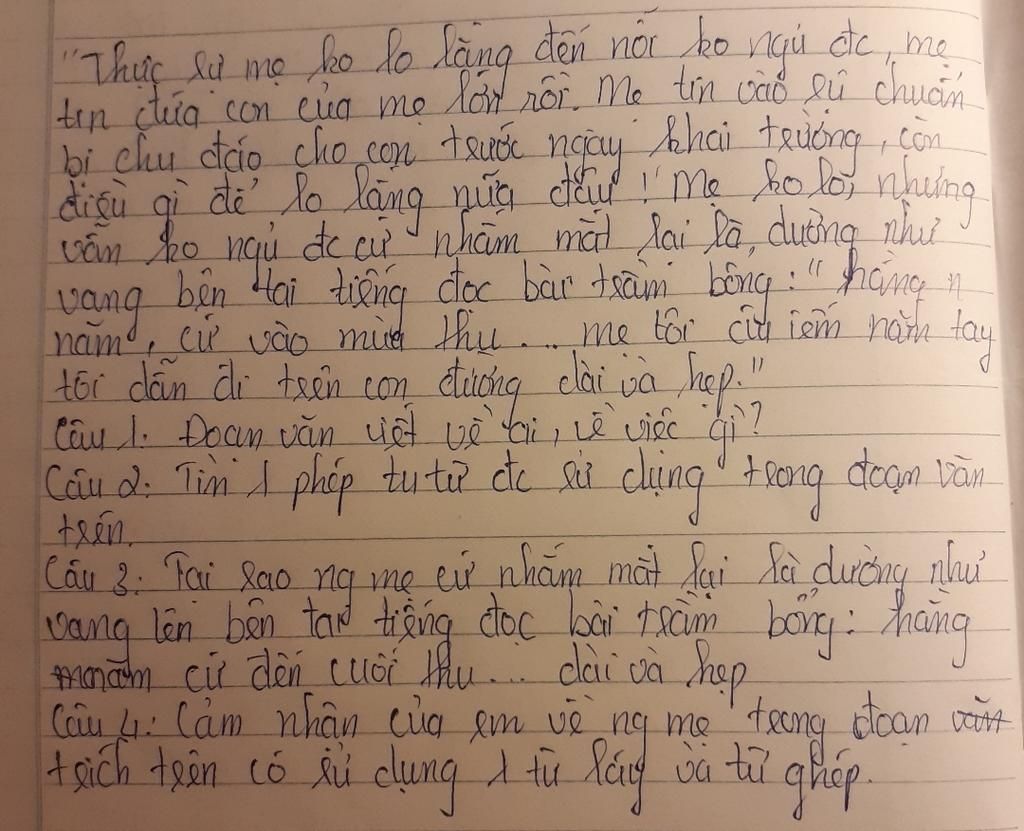 "Thực sự mẹ ko lo lắng đến nỗi ko ngủ đc, mẹ
tin đứa con của mẹ lớn rồi. Mẹ tin vào sự chuẩn
bị chu đáo cho con trước ngày khai trường, còn
điều gì để lo lắng nữa đâu! Mẹ ko lo, nhưng
vẫn ko ngủ đc cứ nhắm mắt lại là, dường như
vang bên tai tiếng đọc bài trầm bổng: "hằng n
năm, cứ vào mùa thu... mẹ tôi âu iếm nắm tay
tôi dẫn đi trên con đường dài và hẹp."
Câu 1. Đoạn văn viết về ai, về việc gì?
Câu 2: Tìm 1 phép tu từ đc sử dụng trong đoạn văn
trên.
Câu 3: Tại sao ng mẹ cứ nhắm mắt lại là dường như
vang lên bên tai tiếng đọc bài trầm bổng: hằng
năm cứ đến cuối thu... dài và hẹp
Câu 4: Cảm nhận của em về ng mẹ trong đoạn
trích trên có sử dụng 1 từ láy và từ ghép.